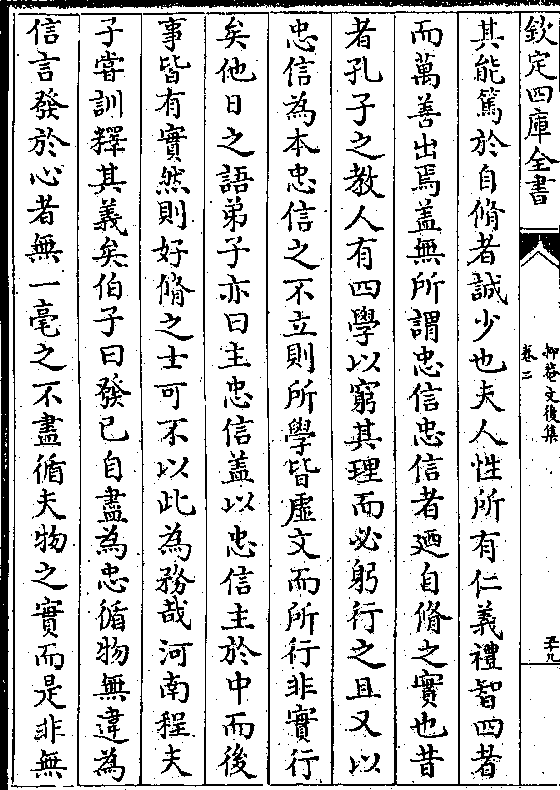 欽定四庫全書
抑菴文後集
卷二
五九
其能篤於自脩者誠少也夫人性所有仁義禮智四者
而萬善出焉盖無所謂忠信忠信者廼自脩之實也昔
者孔子之教人有四學以窮其理而必躬行之且又以
忠信為本忠信之不立則所學皆虛文而所行非實行
矣他日之語弟子亦曰主忠信盖以忠信主於中而後
事皆有實然則好脩之士可不以此為務哉河南程夫
子嘗訓釋其義矣伯子曰發已自盡為忠循物無違為
信言發於心者無一毫之不盡循夫物之實而是非無